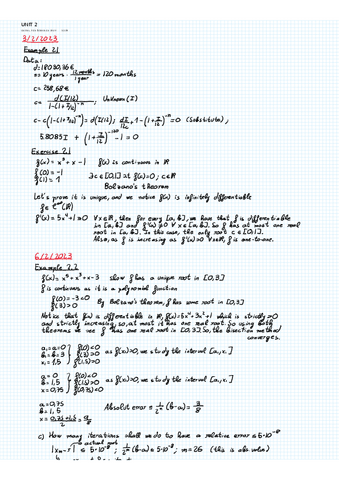 UNIT 2
3/2/2023
Example 2.1
Data:
d = 18030,36 €
n = 10 years · 12 months / 1 year = 120 months
c = 258,68 €
c = d(I/12) / 1-(1+I/12)^-n ; Unknown (I)
c - c(1+I/12)^-n = d(I/12); dI/12c - 1 + (1+I/12)^-n = 0 (Substitute);
5.8085 I + (1+I/12)^-120 - 1 = 0
Exercise 2.1
f(x) = x⁵ + x - 1 f(x) is continuous in ℝ
f(0) = -1
f(1) = 1
∃ c ∈ [0,1] : f(c) = 0; c ∈ ℝ
Bolzano's theorem
Let's prove it is unique, and we notice f(x) is infinitely differentiable
f ∈ (ℝ)
f'(x) = 5x⁴ + 1 ≠ 0 ∀x ∈ ℝ, then for every [a,b], we have that f is differentiable
in [a,b] and f'(x) ≠ 0 ∀x ∈ [a,b]. So f has at most one real
root in [a,b]. In this case, the only root c ∈ [0,1].
Also, as f is increasing as f'(x) > 0 ∀x ∈ ℝ, f is one-to-one.
6/2/2023
Example 2.2
f(x) = x⁵ + x³ + x - 3 show f has a unique root in [0,3]
f is continuous as it is a polynomial function
f(0) = -3 < 0
f(3) > 0
By Bolzano's theorem, f has some root in [0,3]
Notice that f(x) is differentiable in ℝ, f'(x) = 5x⁴ + 3x² + 1 which is strictly > 0
and strictly increasing, so, at most it has one real root. So using both
theorems we see f has one real root in [0,3]. So, the bisection method
converges.
a₁ = a = 0
b₁ = b = 3
x₁ = 1,5
f(0) < 0
f(3) > 0
f(1,5) > 0
as f(x₁) > 0, we study the interval [a₁, x₁]
a = 0
b = 1,5
x = 0,75
f(0) < 0
f(1,5) > 0
f(0,75) < 0
as f(x₁) > 0, we study the interval [a₁, x₁]
a = 0,75
b = 1,5
x = 0,75+1,5 / 2 = 9/8
Absolut error ≤ (b-a) = 3/8
c) How many iterations shall we do to have a relative error ≤ 5·10⁻⁸
actual root
|xₘ - r| ≤ 5·10⁻⁸; (b-a) ≤ 5·10⁻⁸; m = 26 (this is abs.)